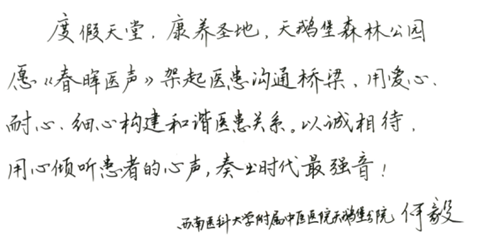 度假天堂，康养圣地，天鹅堡森林公园
愿《春晖医声》架起医患沟通桥梁，用爱心、
耐心、细心构建和谐医患关系。以诚相待，
用心倾听患者的心声，奏出时代最强音！
西南医科大学附属中医医院天鹅堡分院 何毅